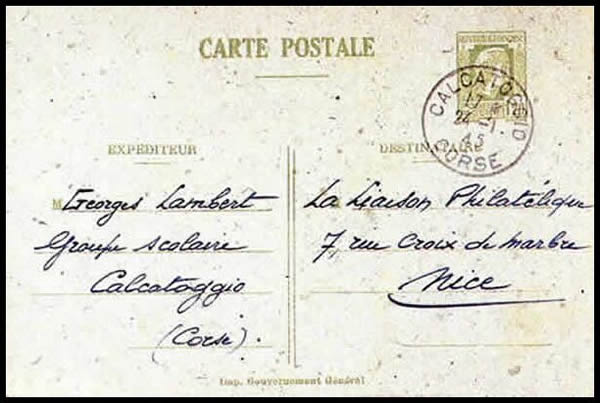 CARTE POSTALE
CALCATOGGIO
17 *
24 - 1
45
CORSE
EXPÉDITEUR
M Georges Lambert
Groupe scolaire
Calcatoggio
(Corse)
DESTINATAIRE
La Liaison Philatélique
7, rue Croix de marbre
Nice
Imp. Gouvernement Général